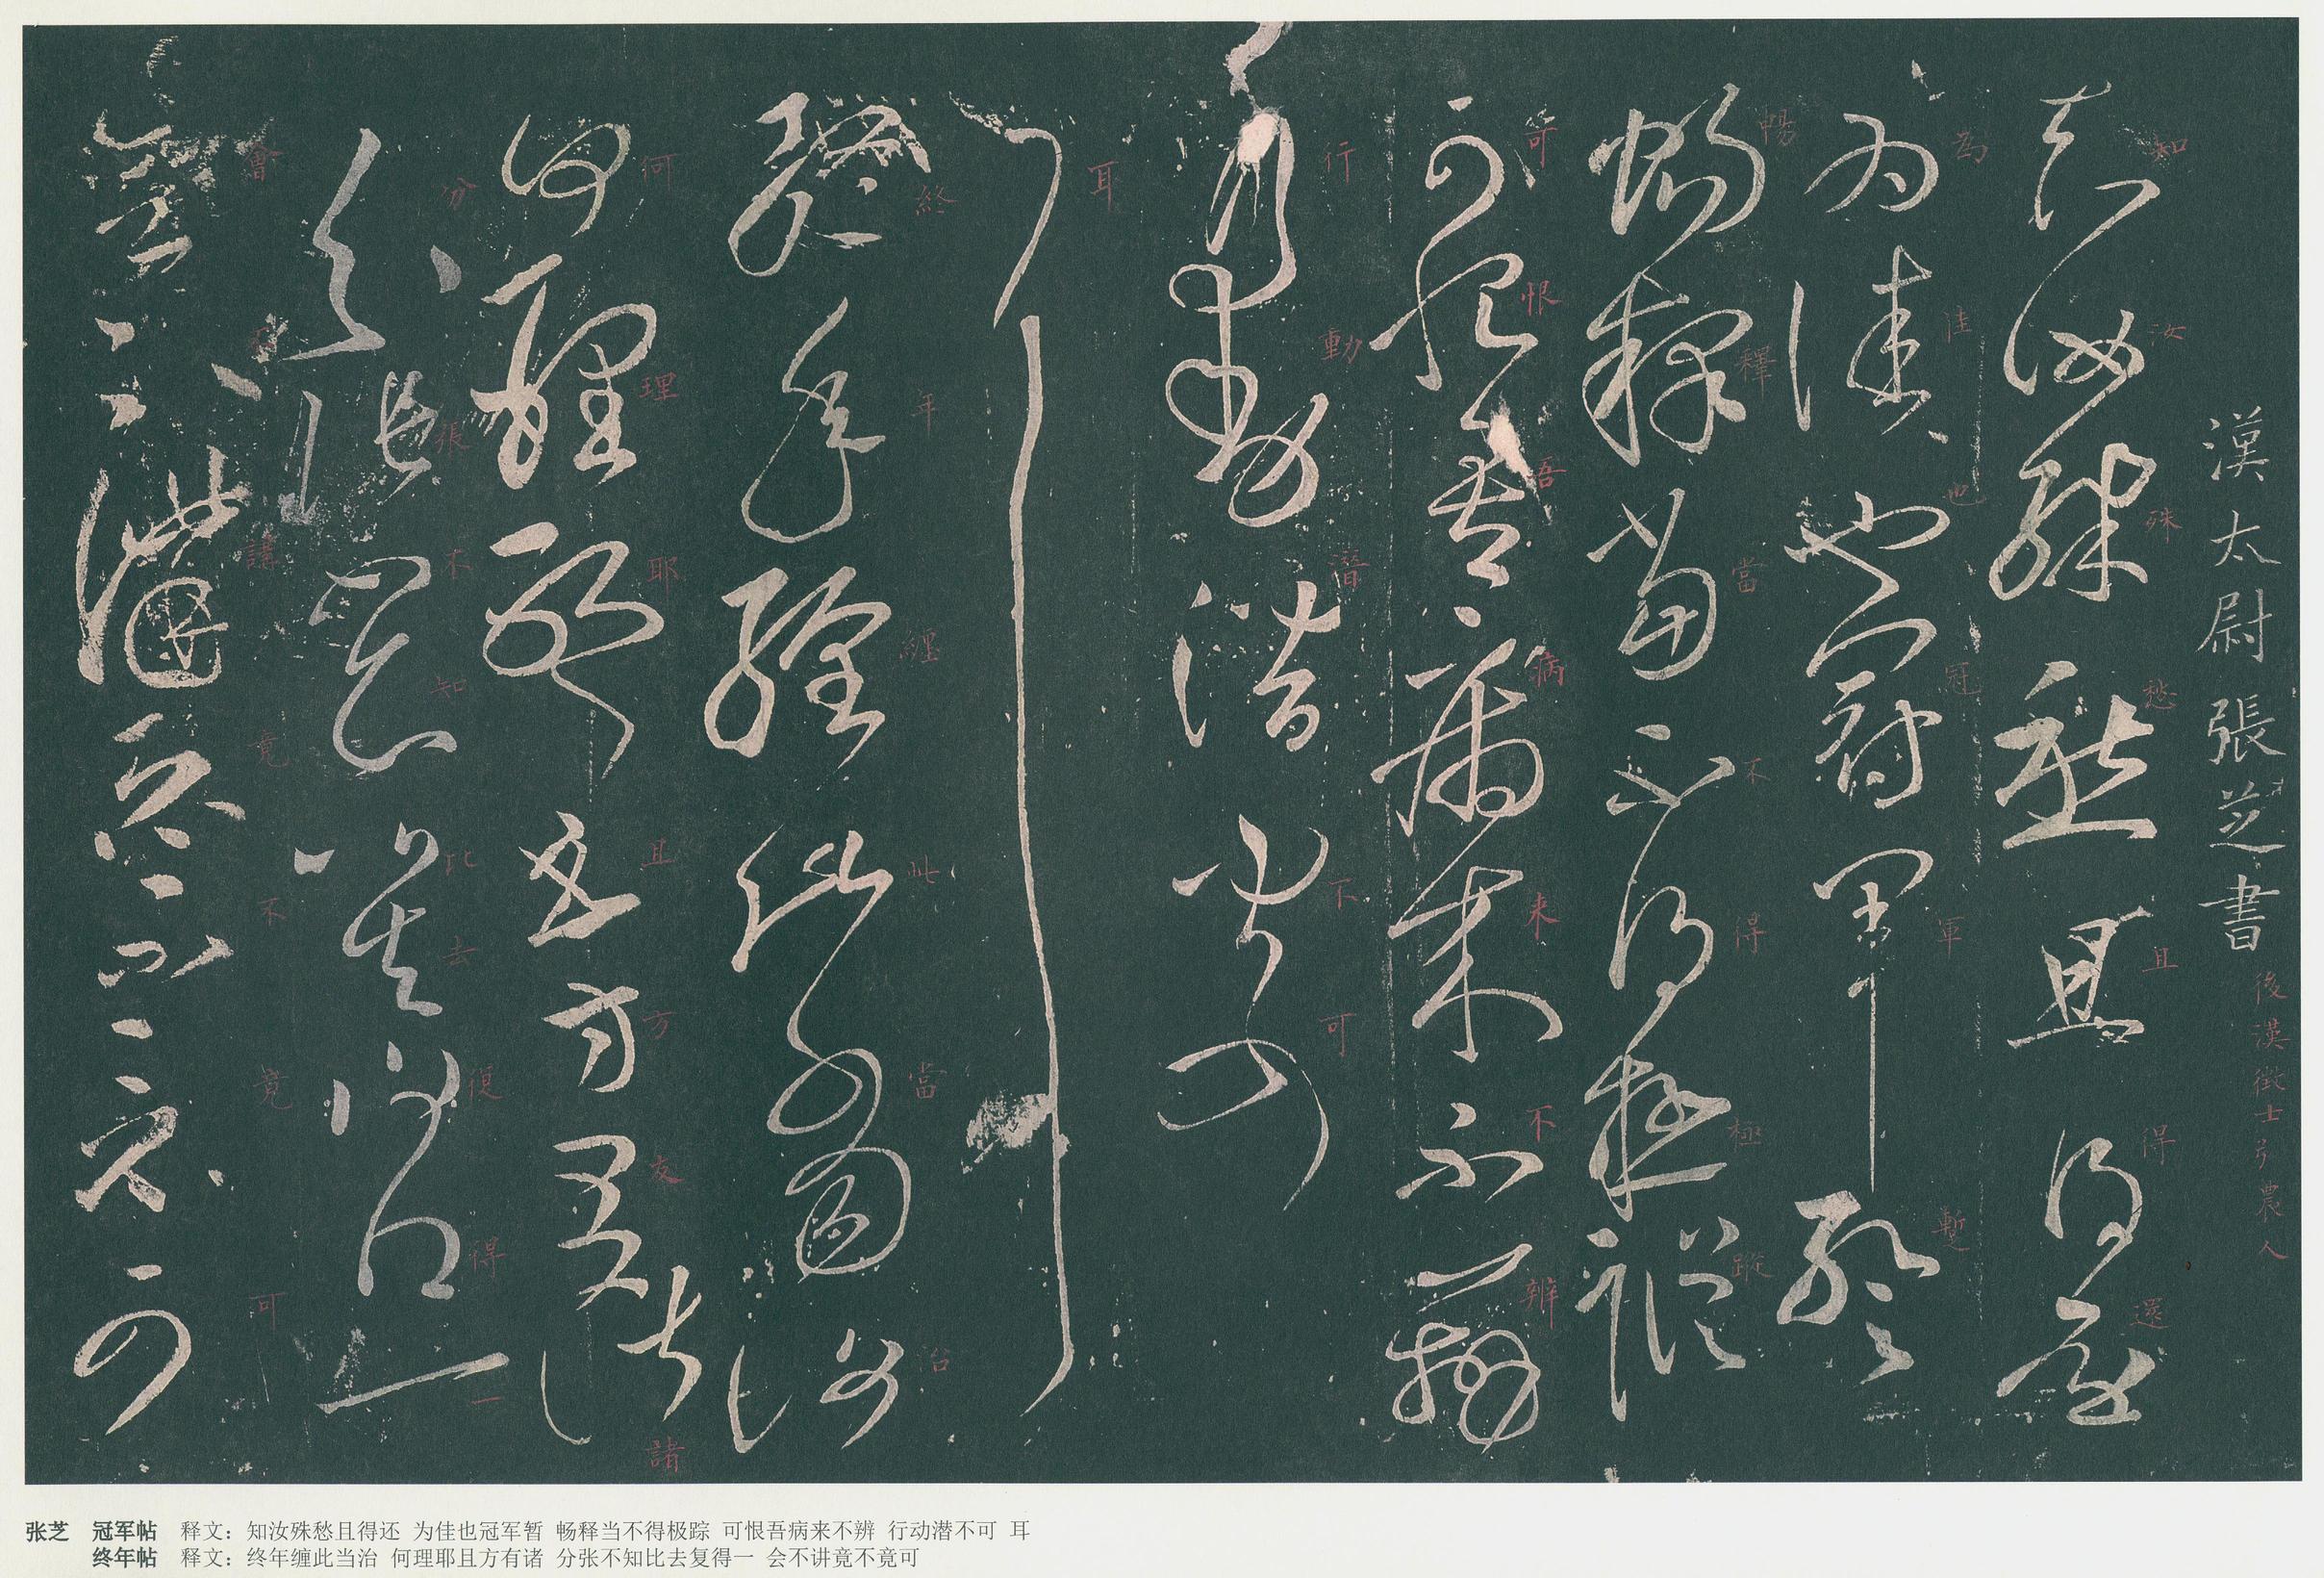 漢太尉張芝書
後漢徵士弘農人
知汝殊愁且得還
為佳也冠軍暫
暢釋當不得極蹤
可恨吾病來不辨
行動潛不可
耳
終年纏此當治
何理耶且方有諸
分張不知比去復得一
會不講竟不竟可
张芝 冠军帖 释文：知汝殊愁且得还 为佳也冠军暂 畅释当不得极踪 可恨吾病来不辨 行动潜不可 耳
终年帖 释文：终年缠此当治 何理耶且方有诸 分张不知比去复得一 会不讲竟不竟可